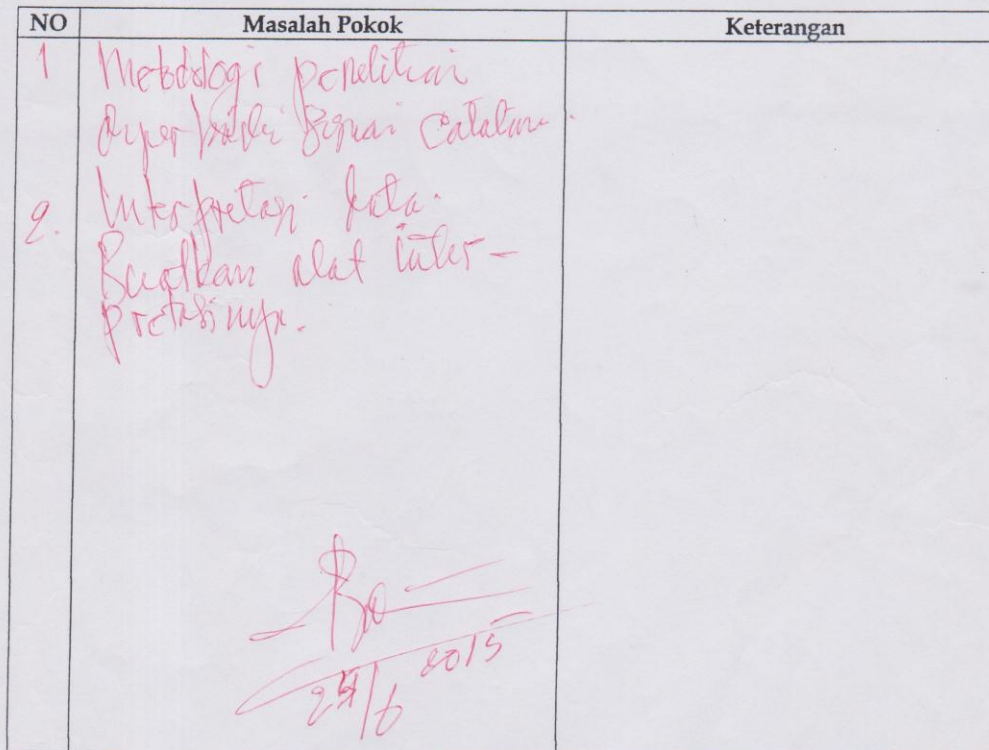 NO Masalah Pokok Keterangan
1 Metodologi penelitian
diperbaiki sesuai catatan.
2. Interpretasi data.
Buatkan alat inter-
pretasinya.
2015